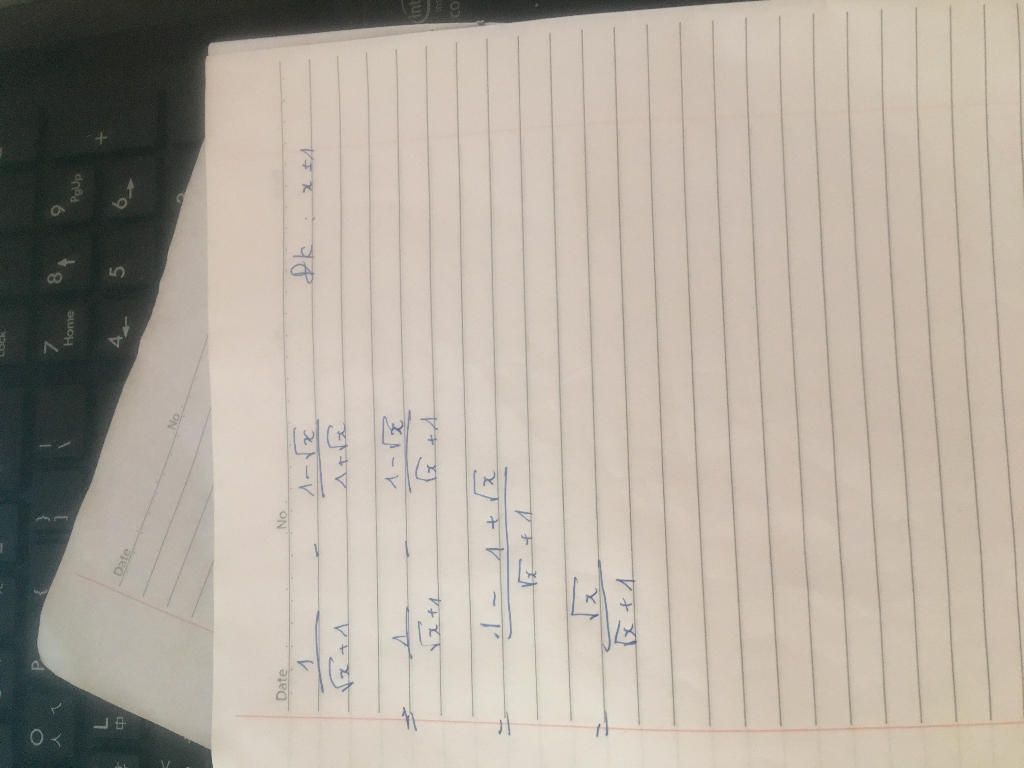 Date No
1/(√x+1) - (1-√x)/(1+√x) Đk : x ≠ 1
= 1/(√x+1) - (1-√x)/(√x+1)
= (1-1+√x)/(√x+1)
= √x/(√x+1)
Date No
7 Home
8
9 PgUp
4
5
6
+
P
{
}
]
|
\
O
L
Lock